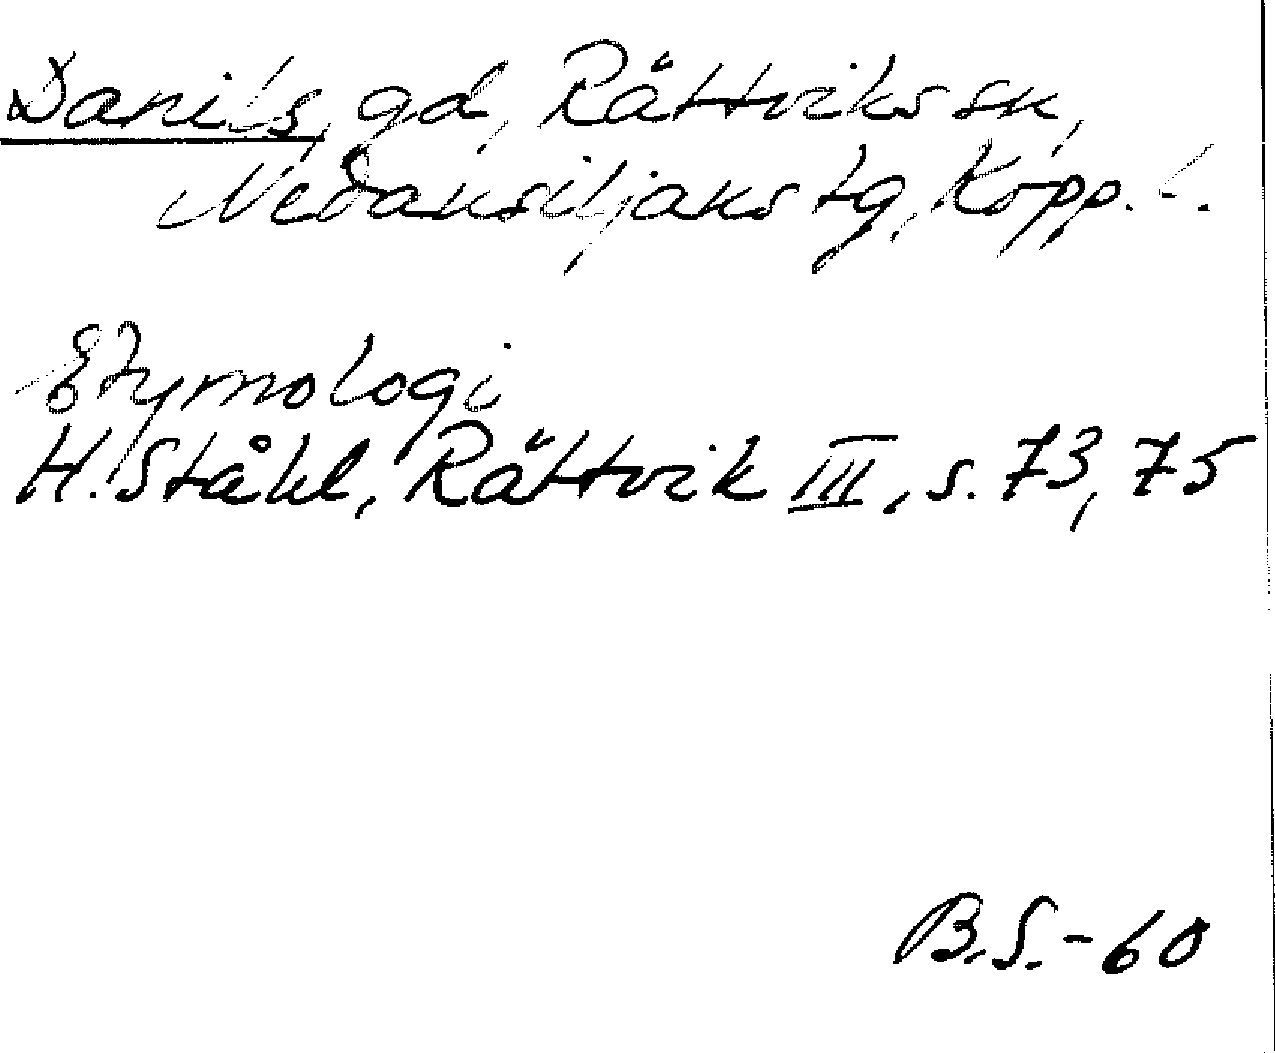 Danils, gd, Rättviks sn,
Nedansiljans tg, Kopp. l.
Etymologi
H. Ståhl, Rättvik III, s. 73, 75
B.S. - 60